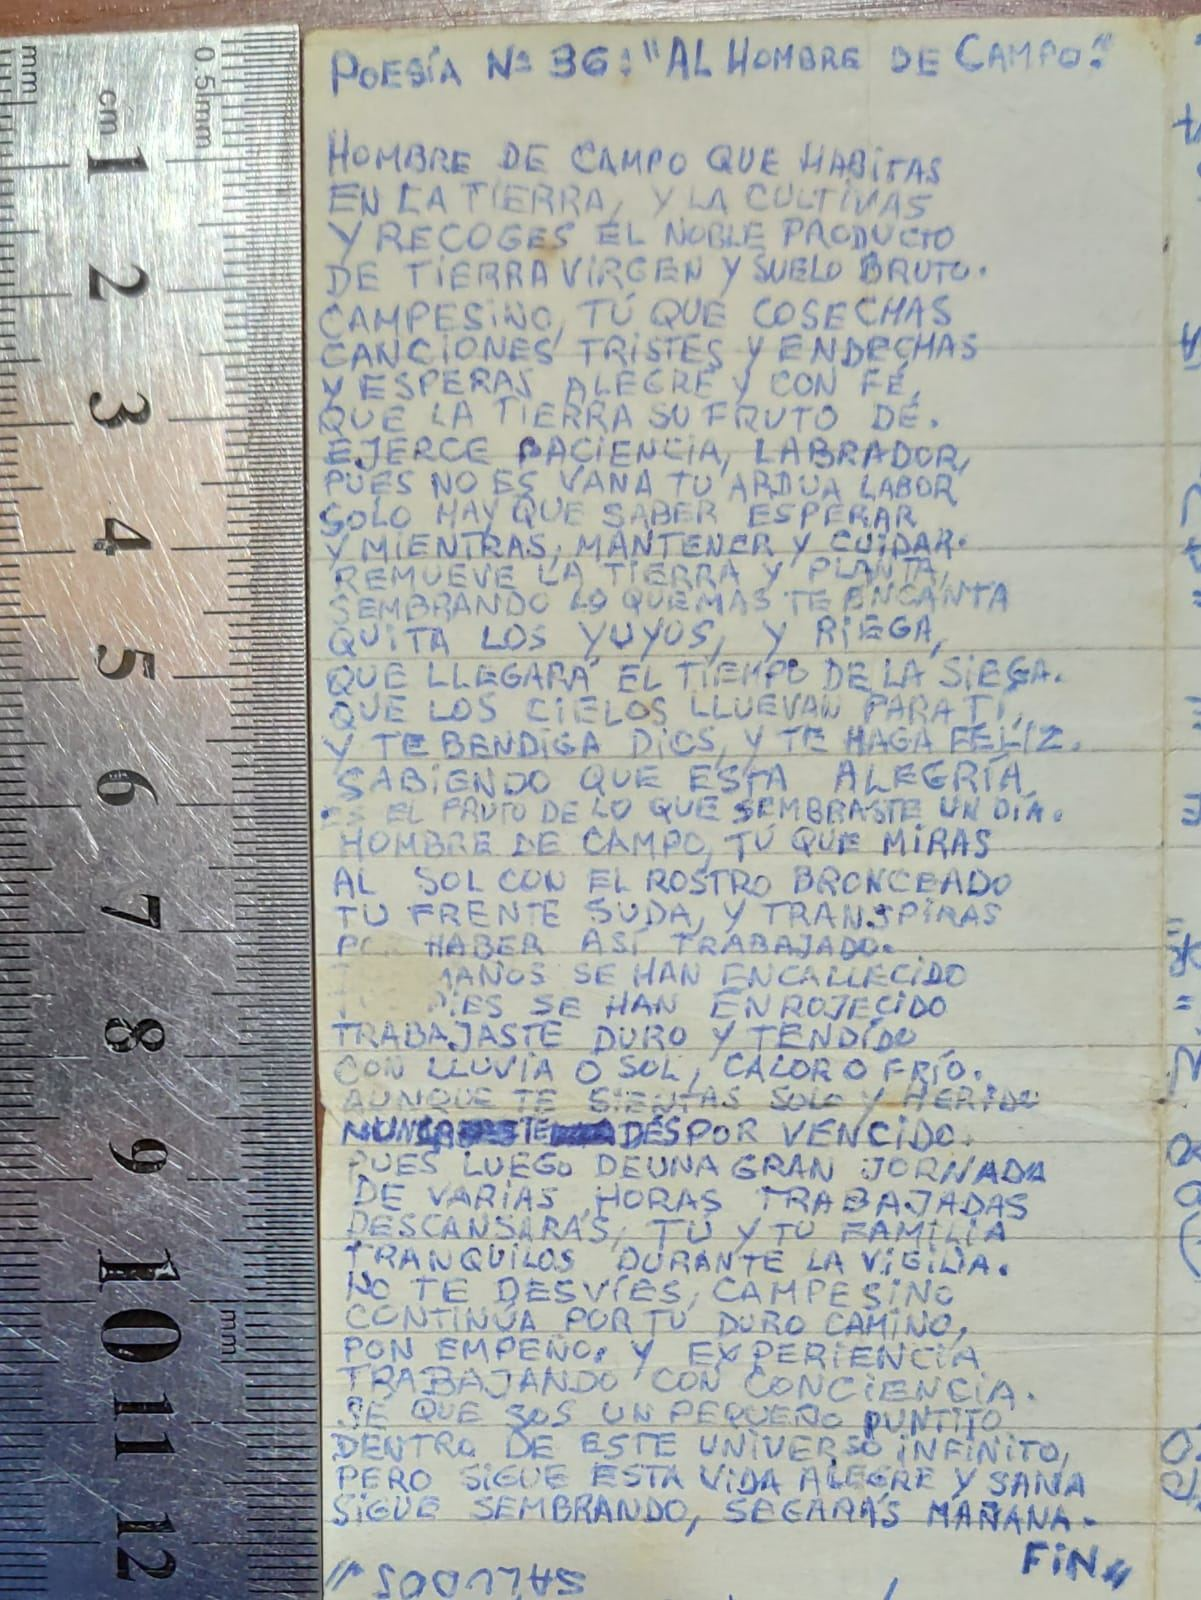 POESÍA Nº 36: "AL HOMBRE DE CAMPO."
HOMBRE DE CAMPO QUE HABITAS
EN LA TIERRA, Y LA CULTIVAS
Y RECOGES EL NOBLE PRODUCTO
DE TIERRA VIRGEN Y SUELO BRUTO.
CAMPESINO, TÚ QUE COSECHAS
CANCIONES TRISTES Y ENDECHAS
Y ESPERAS ALEGRE Y CON FE,
QUE LA TIERRA SU FRUTO DÉ.
EJERCE PACIENCIA, LABRADOR,
PUES NO ES VANA TU ARDUA LABOR
SOLO HAY QUE SABER ESPERAR
Y MIENTRAS, MANTENER Y CUIDAR.
REMUEVE LA TIERRA Y PLANTA,
SEMBRANDO LO QUE MAS TE ENCANTA
QUITA LOS YUYOS, Y RIEGA,
QUE LLEGARÁ EL TIEMPO DE LA SIEGA.
QUE LOS CIELOS LLUEVAN PARA TI,
Y TE BENDIGA DIOS, Y TE HAGA FELIZ.
SABIENDO QUE ESTA ALEGRÍA
ES EL FRUTO DE LO QUE SEMBRASTE UN DÍA.
HOMBRE DE CAMPO, TÚ QUE MIRAS
AL SOL CON EL ROSTRO BRONCEADO
TU FRENTE SUDA, Y TRANSPIRAS
HABER ASÍ TRABAJADO.
MANOS SE HAN ENCALLECIDO
PIES SE HAN ENROJECIDO
TRABAJASTE DURO Y TENDIDO
CON LLUVIA O SOL, CALOR O FRÍO.
AUNQUE TE SIENTAS SOLO Y HERIDO
DÉS POR VENCIDO.
PUES LUEGO DE UNA GRAN JORNADA
DE VARIAS HORAS TRABAJADAS
DESCANSARÁS, TU Y TU FAMILIA
TRANQUILOS DURANTE LA VIGILIA.
NO TE DESVÍES, CAMPESINO
CONTINÚA POR TU DURO CAMINO,
PON EMPEÑO, Y EXPERIENCIA
TRABAJANDO CON CONCIENCIA.
SÉ QUE SOS UN PEQUEÑO PUNTITO
DENTRO DE ESTE UNIVERSO INFINITO,
PERO SIGUE ESTA VIDA ALEGRE Y SANA
SIGUE SEMBRANDO, SEGARÁS MAÑANA.
FIN
SALUDOS
0.5mm
mm
cm
1
2
3
4
5
6
7
8
9
10
11
12
mm